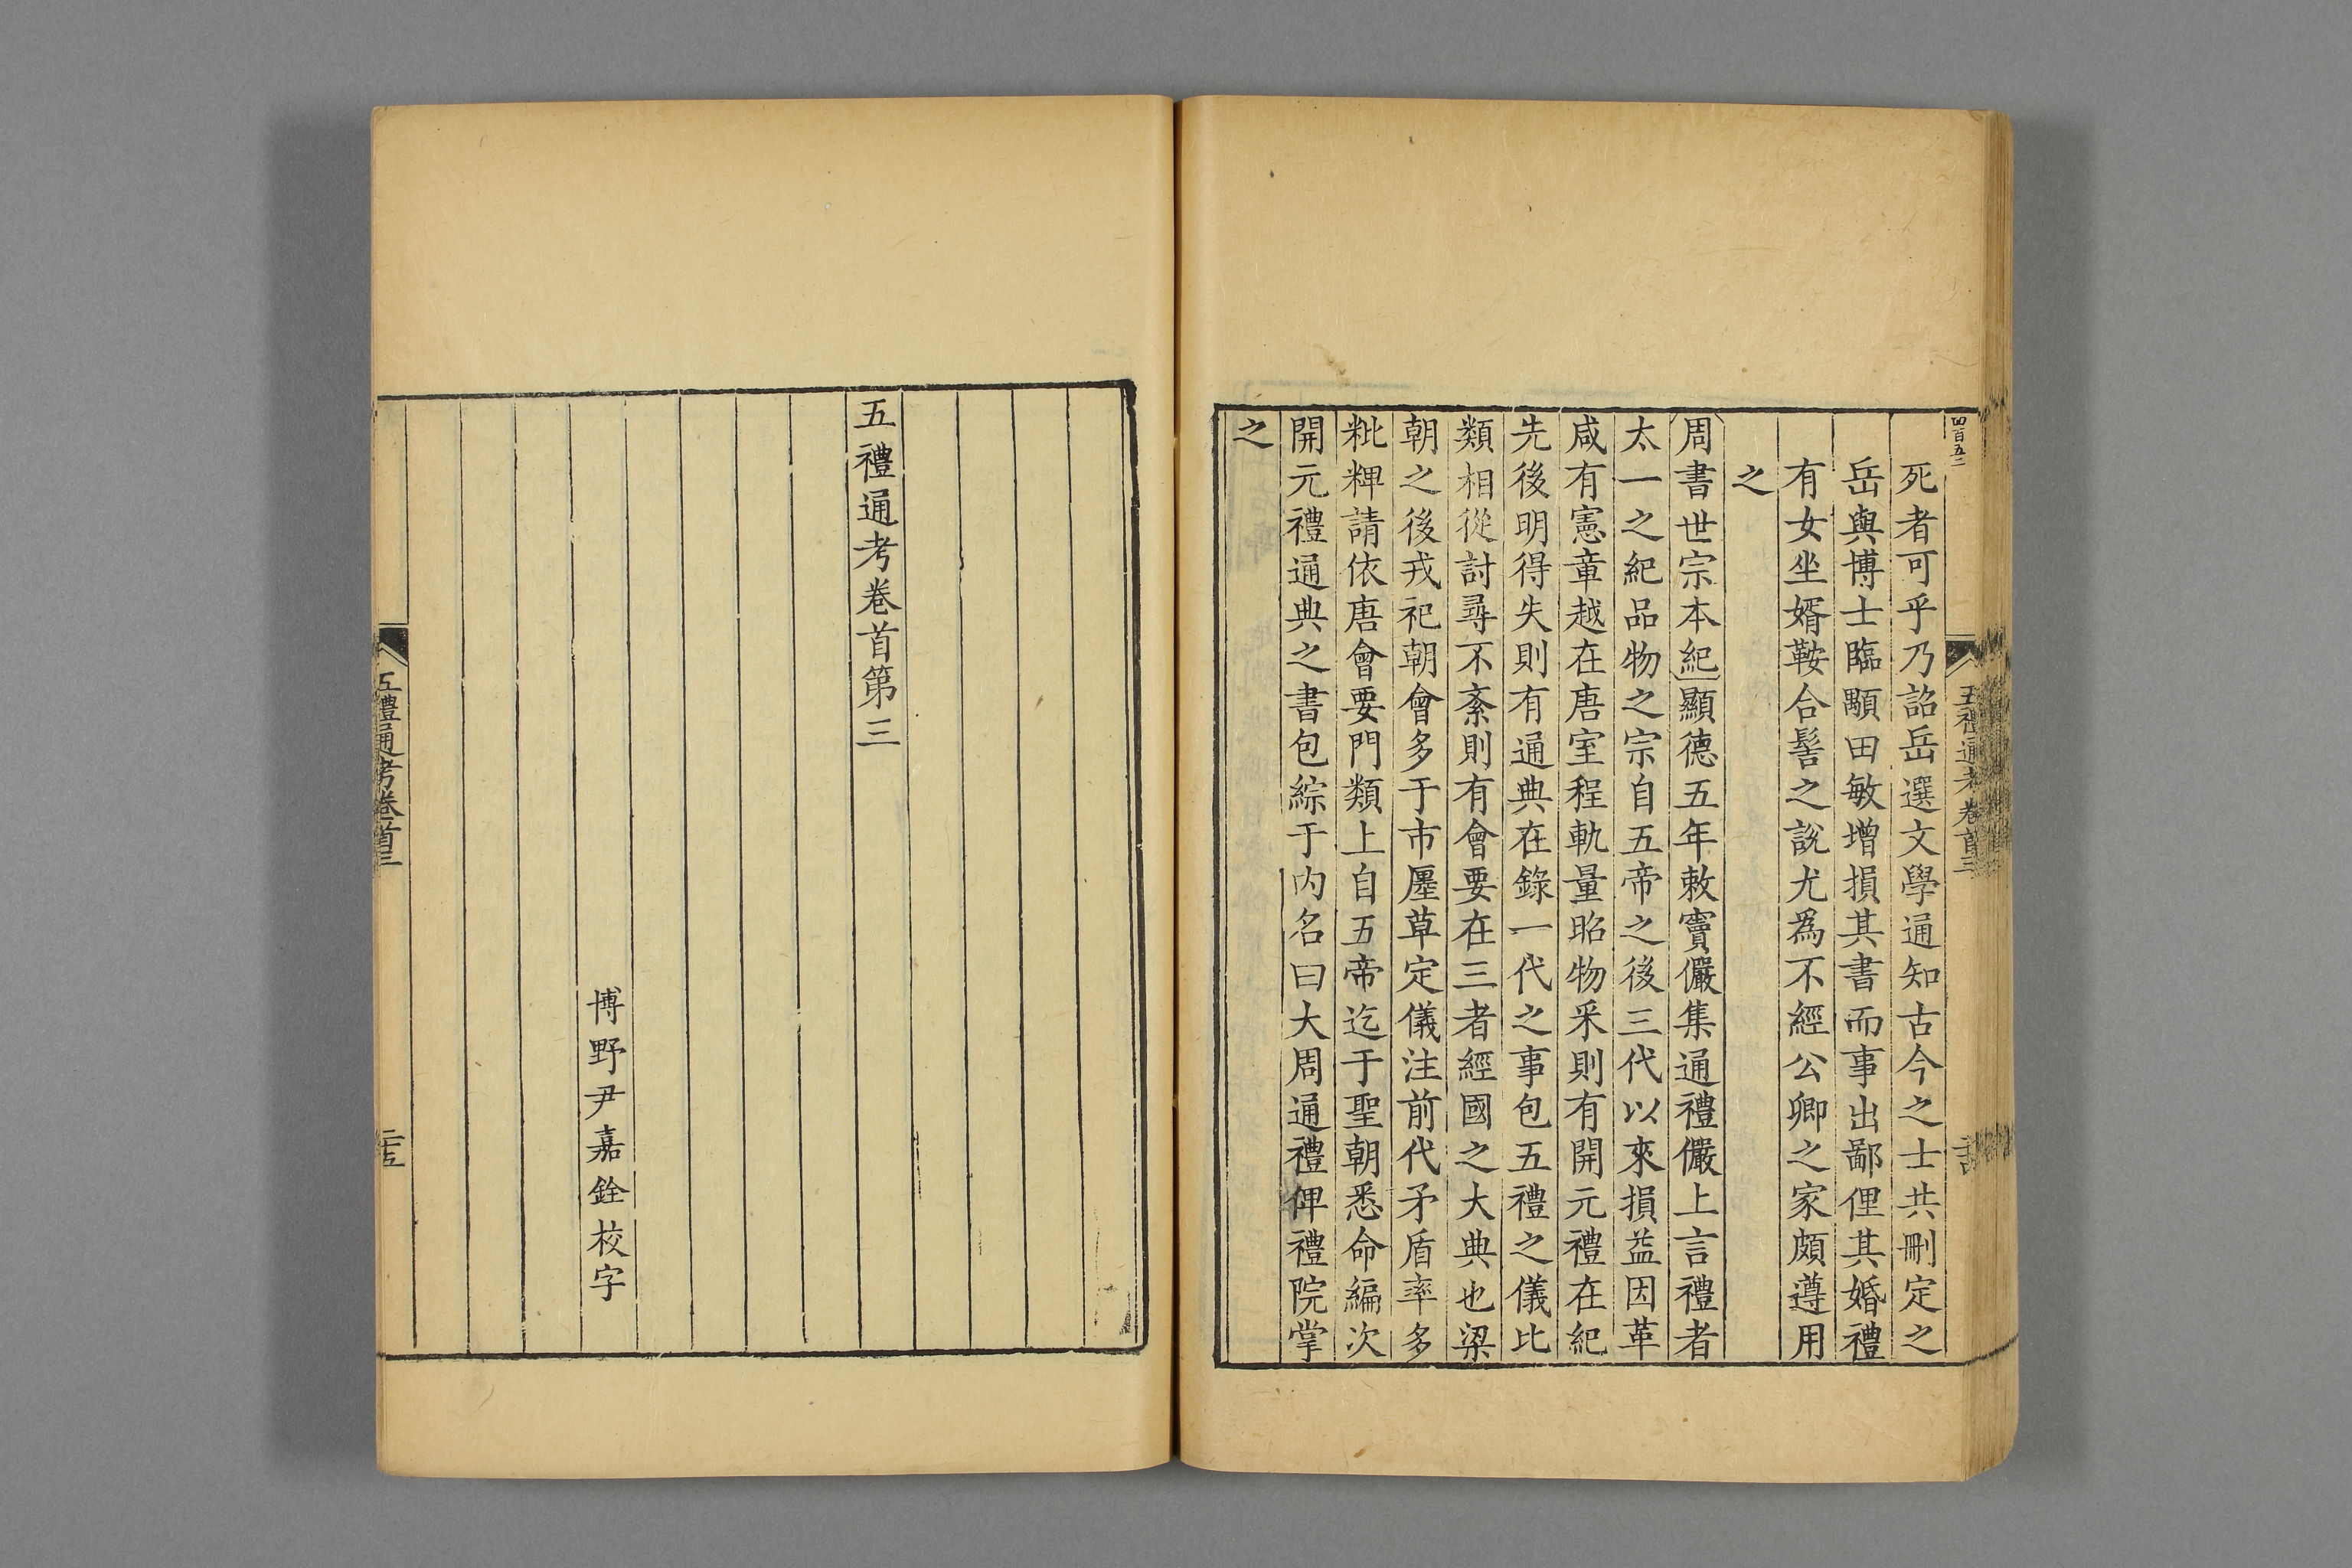 四百五二
五禮通考卷首三
死者可乎乃詔岳選文學通知古今之士共刪定之
岳與博士臨顒田敏增損其書而事出鄙俚其婚禮
有女坐婿鞍合髻之說尤爲不經公卿之家頗遵用
之
周書世宗本紀顯德五年敕竇儼集通禮儼上言禮者
太一之紀品物之宗自五帝之後三代以來損益因革
咸有憲章越在唐室程軌量昭物采則有開元禮在紀
先後明得失則有通典在錄一代之事包五禮之儀比
類相從討尋不紊則有會要在三者經國之大典也梁
朝之後戎祀朝會多于市廛草定儀注前代矛盾率多
粃粺請依唐會要門類上自五帝迄于聖朝悉命編次
開元禮通典之書包綜于內名曰大周通禮俾禮院掌
之
五禮通考卷首第三
博野尹嘉銓校字
五禮通考卷首三
二十五